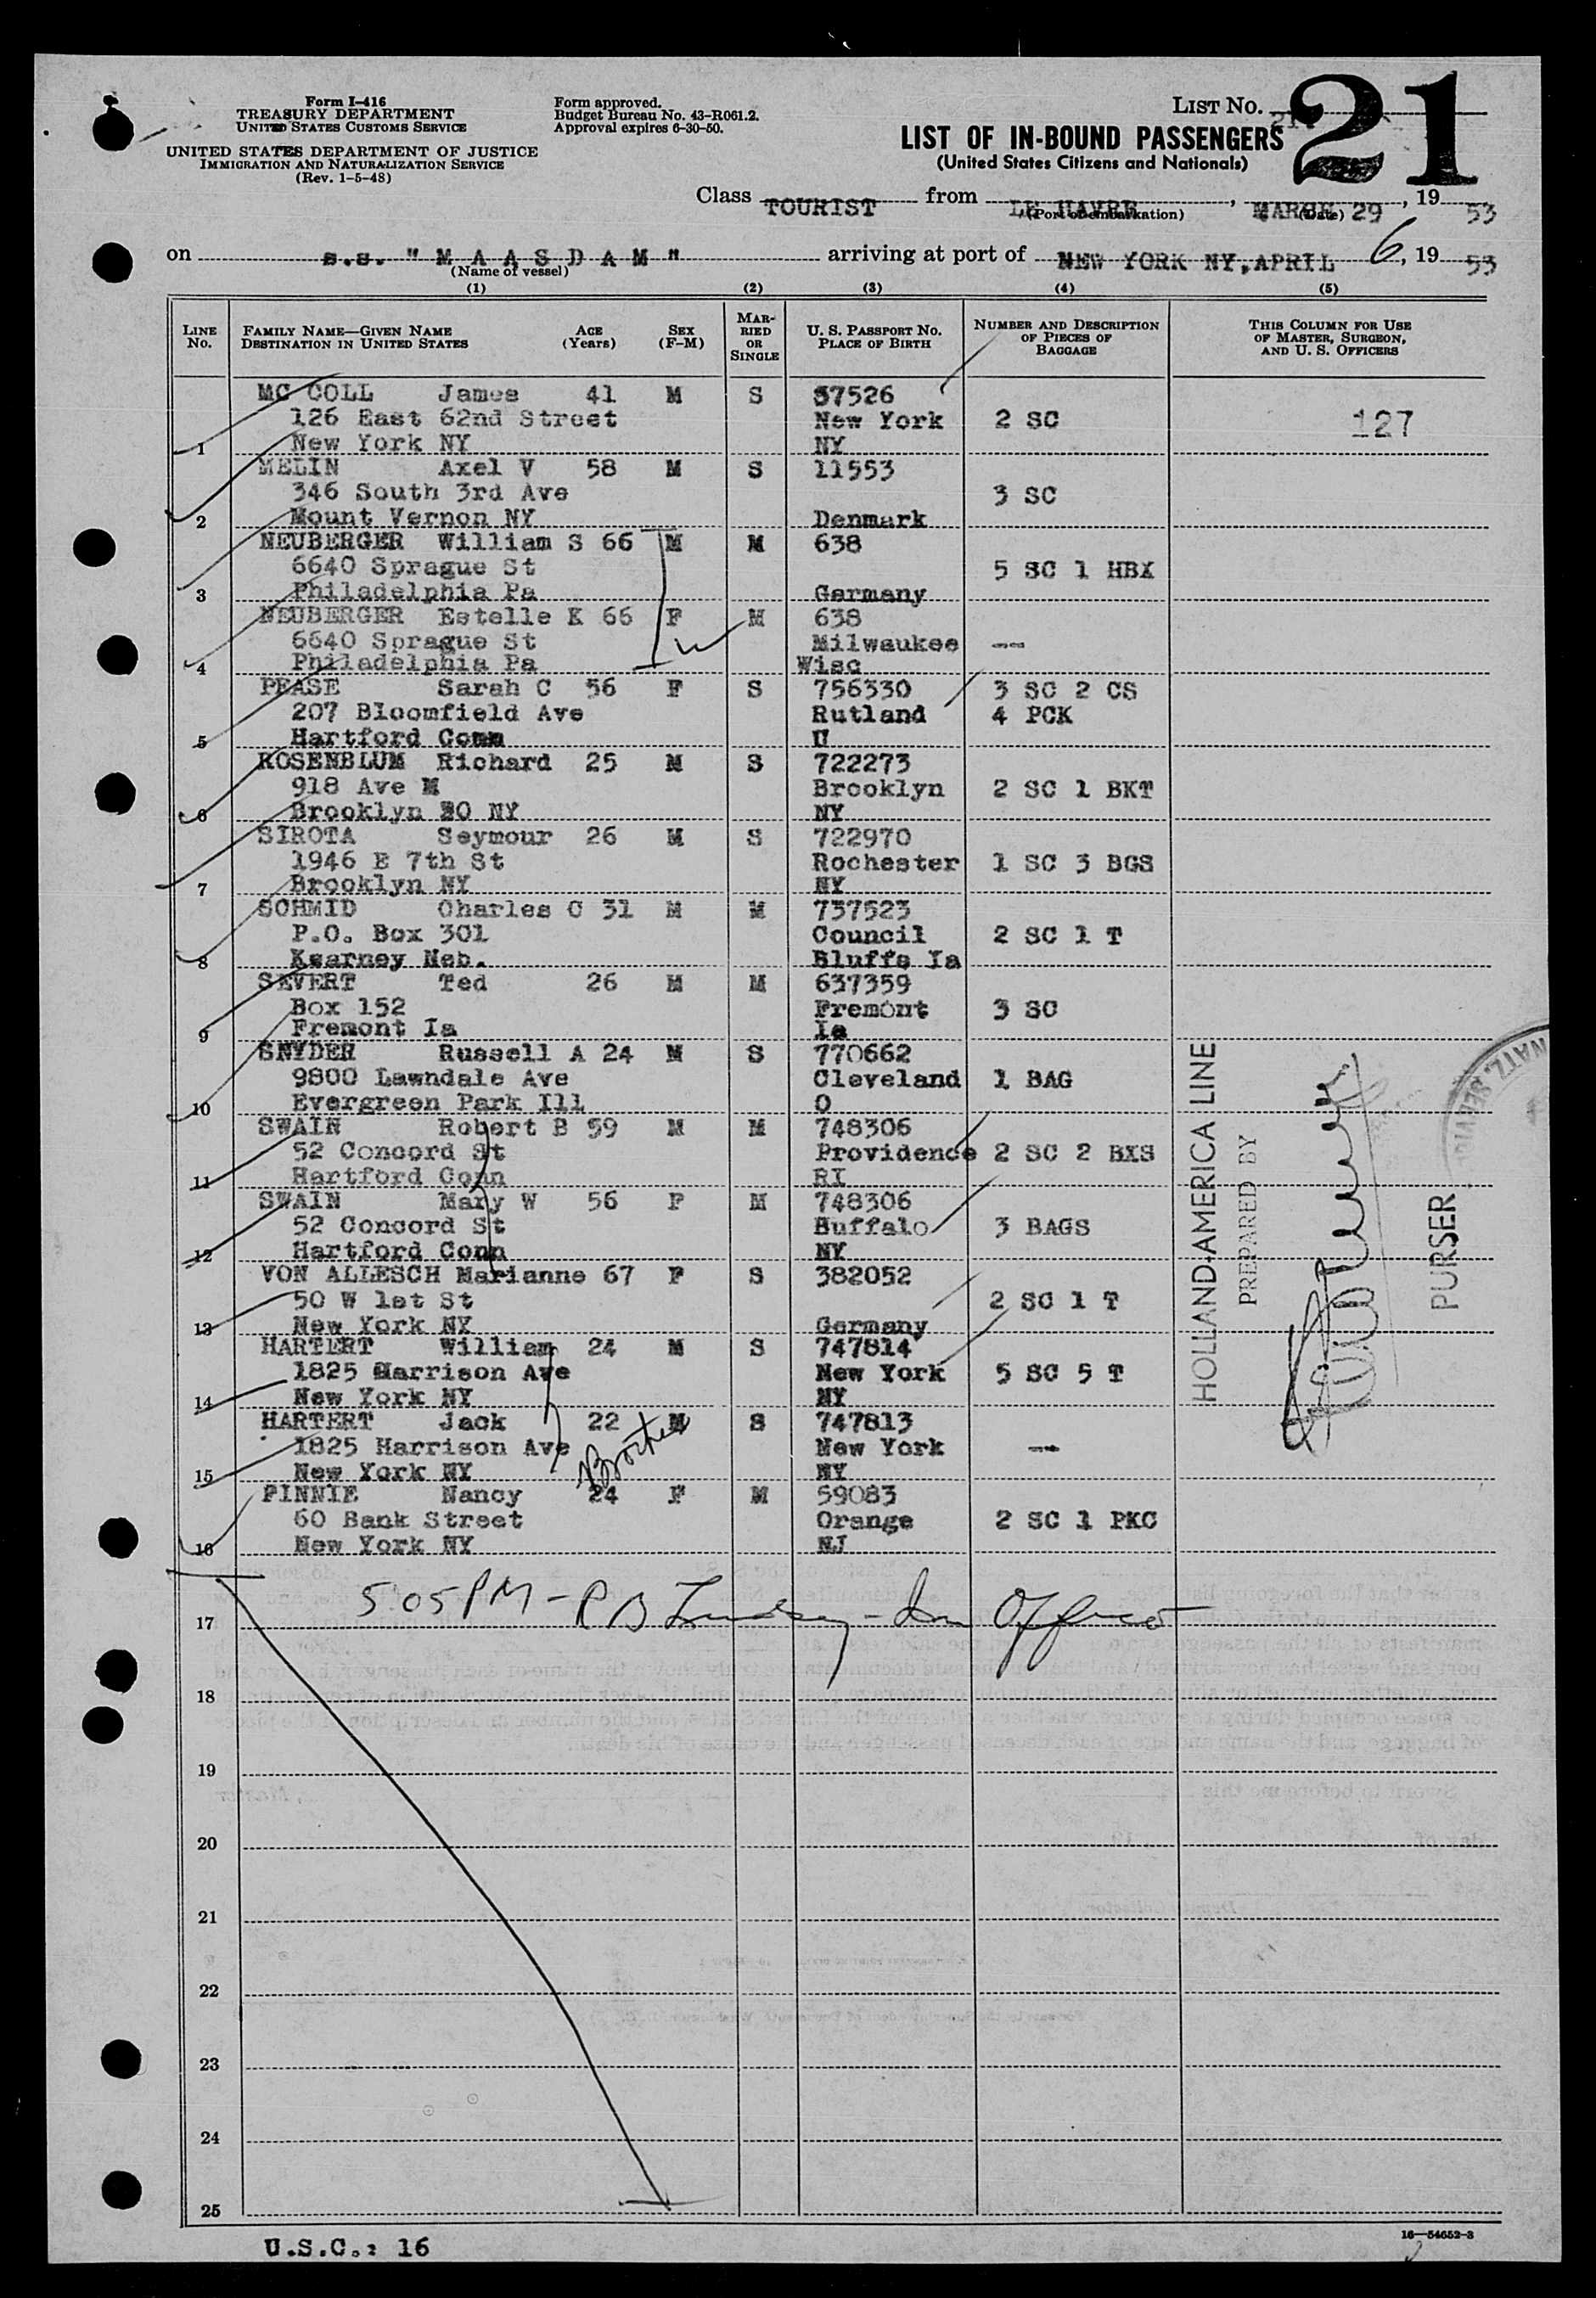 Form I-416
TREASURY DEPARTMENT
UNITED STATES CUSTOMS SERVICE
UNITED STATES DEPARTMENT OF JUSTICE
IMMIGRATION AND NATURALIZATION SERVICE
(Rev. 1-5-48)
Form approved.
Budget Bureau No. 43-R061.2.
Approval expires 6-30-50.
LIST NO. 21
21
LIST OF IN-BOUND PASSENGERS
(United States Citizens and Nationals)
Class TOURIST from LE HAVRE, MARCH 29, 19 53
(Port of embarkation) (Date)
on s.s. " M A A S D A M " arriving at port of NEW YORK NY, APRIL 6, 19 53
(Name of vessel)
(1) (2) (3) (4) (5)
LINE No. FAMILY NAME—GIVEN NAME DESTINATION IN UNITED STATES AGE (Years) SEX (F-M) MARRIED OR SINGLE U. S. PASSPORT NO. PLACE OF BIRTH NUMBER AND DESCRIPTION OF PIECES OF BAGGAGE THIS COLUMN FOR USE OF MASTER, SURGEON, AND U. S. OFFICERS
MC COLL James 41 M S 37526
126 East 62nd Street New York 2 SC 127
1 New York NY NY
MELIN Axel V 58 M S 11553
346 South 3rd Ave 3 SC
2 Mount Vernon NY Denmark
NEUBERGER William S 66 M M 638
6640 Sprague St 5 SC 1 HBX
3 Philadelphia Pa Germany
NEUBERGER Estelle K 66 F M 638
6640 Sprague St Milwaukee --
4 Philadelphia Pa Wisc
PEASE Sarah C 56 F S 756330 3 SC 2 CS
207 Bloomfield Ave Rutland 4 PCK
5 Hartford Conn U
ROSENBLUM Richard 25 M S 722273
918 Ave M Brooklyn 2 SC 1 BKT
6 Brooklyn 30 NY NY
SIROTA Seymour 26 M S 722970
1946 E 7th St Rochester 1 SC 3 BGS
7 Brooklyn NY NY
SCHMID Charles C 31 M M 737523
P.O. Box 301 Council 2 SC 1 T
8 Kearney Neb. Bluffs Ia
SEVERT Ted 26 M M 637359
Box 152 Fremont 3 SC
9 Fremont Ia Ia
SNYDER Russell A 24 M S 770662
9800 Lawndale Ave Cleveland 1 BAG
10 Evergreen Park Ill O
SWAIN Robert B 59 M M 748306
52 Concord St Providence 2 SC 2 BXS
11 Hartford Conn RI
SWAIN Mary W 56 F M 748306
52 Concord St Buffalo 3 BAGS
12 Hartford Conn NY
VON ALLESCH Marianne 67 F S 382052
50 W 1st St 2 SC 1 T
13 New York NY Germany
HARTERT William 24 M S 747814
1825 Harrison Ave New York 5 SC 5 T
14 New York NY NY
HARTERT Jack 22 M S 747813
1825 Harrison Ave Brother New York --
15 New York NY NY
PINNIE Nancy 24 F M 59083
60 Bank Street Orange 2 SC 1 PKC
16 New York NY NJ
HOLLAND-AMERICA LINE
PREPARED BY
PURSER
5:05 PM - R B Lindsay - Im Officer
17
18
19
20
21
22
23
24
25
U.S.C.: 16
16—54652-3